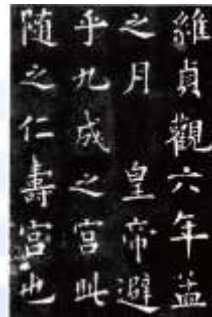 維貞觀六年孟
之月 皇帝避
乎九成之宮此
随之仁壽宮也